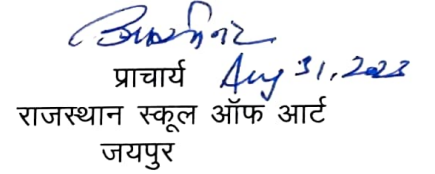 प्राचार्य Aug 31, 2023
राजस्थान स्कूल ऑफ आर्ट
जयपुर